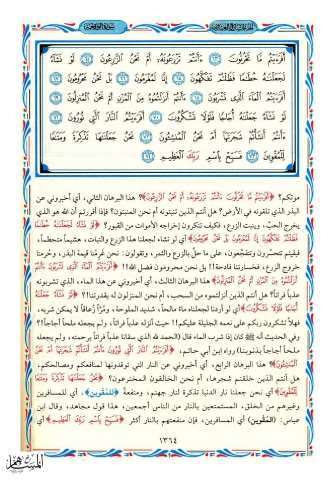 أَفَرَءَيْتُم مَّا تَحْرُثُونَ ٦٣ ءَأَنتُمْ تَزْرَعُونَهُۥٓ أَمْ نَحْنُ ٱلزَّٰرِعُونَ ٦٤ لَوْ نَشَآءُ
لَجَعَلْنَٰهُ حُطَٰمًا فَظَلْتُمْ تَفَكَّهُونَ ٦٥ إِنَّا لَمُغْرَمُونَ ٦٦ بَلْ نَحْنُ مَحْرُومُونَ ٦٧
أَفَرَءَيْتُمُ ٱلْمَآءَ ٱلَّذِى تَشْرَبُونَ ٦٨ ءَأَنتُمْ أَنزَلْتُمُوهُ مِنَ ٱلْمُزْنِ أَمْ نَحْنُ ٱلْمُنزِلُونَ ٦٩
لَوْ نَشَآءُ جَعَلْنَٰهُ أُجَاجًا فَلَوْلَا تَشْكُرُونَ ٧٠ أَفَرَءَيْتُمُ ٱلنَّارَ ٱلَّتِى تُورُونَ ٧١
ءَأَنتُمْ أَنشَأْتُمْ شَجَرَتَهَآ أَمْ نَحْنُ ٱلْمُنشِـُٔونَ ٧٢ نَحْنُ جَعَلْنَٰهَا تَذْكِرَةً وَمَتَٰعًا
لِّلْمُقْوِينَ ٧٣ فَسَبِّحْ بِٱسْمِ رَبِّكَ ٱلْعَظِيمِ ٧٤
موتكم؟ ﴿أَفَرَءَيْتُم مَّا تَحْرُثُونَ ءَأَنتُمْ تَزْرَعُونَهُۥٓ أَمْ نَحْنُ ٱلزَّٰرِعُونَ﴾؟ هذا البرهان الثاني، أي أخبروني عن
البذر الذي تلقونه في الأرض؟ هل أنتم الذين تنبتونه أم نحن المنبتون؟ فإذا أقررتم أن الله هو الذي
يخرج الحبَّ، وينبت الزرع، فكيف تنكرون إخراجه الأموات من القبور؟ ﴿لَوْ نَشَآءُ لَجَعَلْنَٰهُ حُطَٰمًا
فَظَلْتُمْ تَفَكَّهُونَ إِنَّا لَمُغْرَمُونَ بَلْ نَحْنُ مَحْرُومُونَ﴾ أي لو نشاء لجعلنا هذا الزرع والنبات، هشيماً متحطماً،
فبقيتم تتحسَّرون وتتفجَّعون، على ما حلَّ بالزرع والثمر، وتقولون: نحن غُرِمنا قيمة البذر، وحُرِمنا
خروج الزرع، فخسارتنا فادحة!! بل نحن محرومون فضل الله!! ﴿أَفَرَءَيْتُمُ ٱلْمَآءَ ٱلَّذِى تَشْرَبُونَ ءَأَنتُمْ
أَنزَلْتُمُوهُ مِنَ ٱلْمُزْنِ أَمْ نَحْنُ ٱلْمُنزِلُونَ﴾؟ هذا البرهان الثالث، أي أخبروني عن هذا الماء، الذي تشربونه
عذباً فراتاً؟ هل أنتم الذين أنزلتموه من السحب، أم نحن المنزلون له بقدرتنا؟؟ ﴿لَوْ نَشَآءُ جَعَلْنَٰهُ
أُجَاجًا فَلَوْلَا تَشْكُرُونَ﴾ أي لو أردنا لجعلناه ماءً مالحاً، شديد الملوحة، ومُرًّا زُعافاً لا يمكن شربه،
فهلاَّ تشكرون ربكم على نعمه الجليلة عليكم!! حيث أنزله عذباً فراتاً، ولم يجعله ملحاً أجاجاً؟
وفي الحديث أنه ﷺ كان إذا شرب الماء قال (الحمد لله الذي سقانا عذباً فراتاً برحمته، ولم يجعله
ملحاً أجاجاً بذنوبنا) رواه ابن أبي حاتم، ﴿أَفَرَءَيْتُمُ ٱلنَّارَ ٱلَّتِى تُورُونَ ءَأَنتُمْ أَنشَأْتُمْ شَجَرَتَهَآ أَمْ نَحْنُ
ٱلْمُنشِـُٔونَ﴾؟ هذا البرهان الرابع، أي أخبروني عن النار التي توقدونها لمنافعكم ومصالحكم،
هل أنتم الذين خلقتم شجرها، أم نحن الخالقون المخترعون؟ ﴿نَحْنُ جَعَلْنَٰهَا تَذْكِرَةً وَمَتَٰعًا
لِّلْمُقْوِينَ﴾ أي نحن جعلنا نار الدنيا تذكرة لنار جهنم، ومنفعةً ﴿لِّلْمُقْوِينَ﴾، أي للمسافرين
وغيرهم من الخلق، المستمتعين بالنار من الناس أجمعين، هذا قول مجاهد، وقال ابن
عباس: (المُقْوين) أي المسافرين، فإن منفعتهم بالنار أكثر ﴿فَسَبِّحْ بِٱسْمِ رَبِّكَ ٱلْعَظِيمِ﴾ أي
١٣٦٤